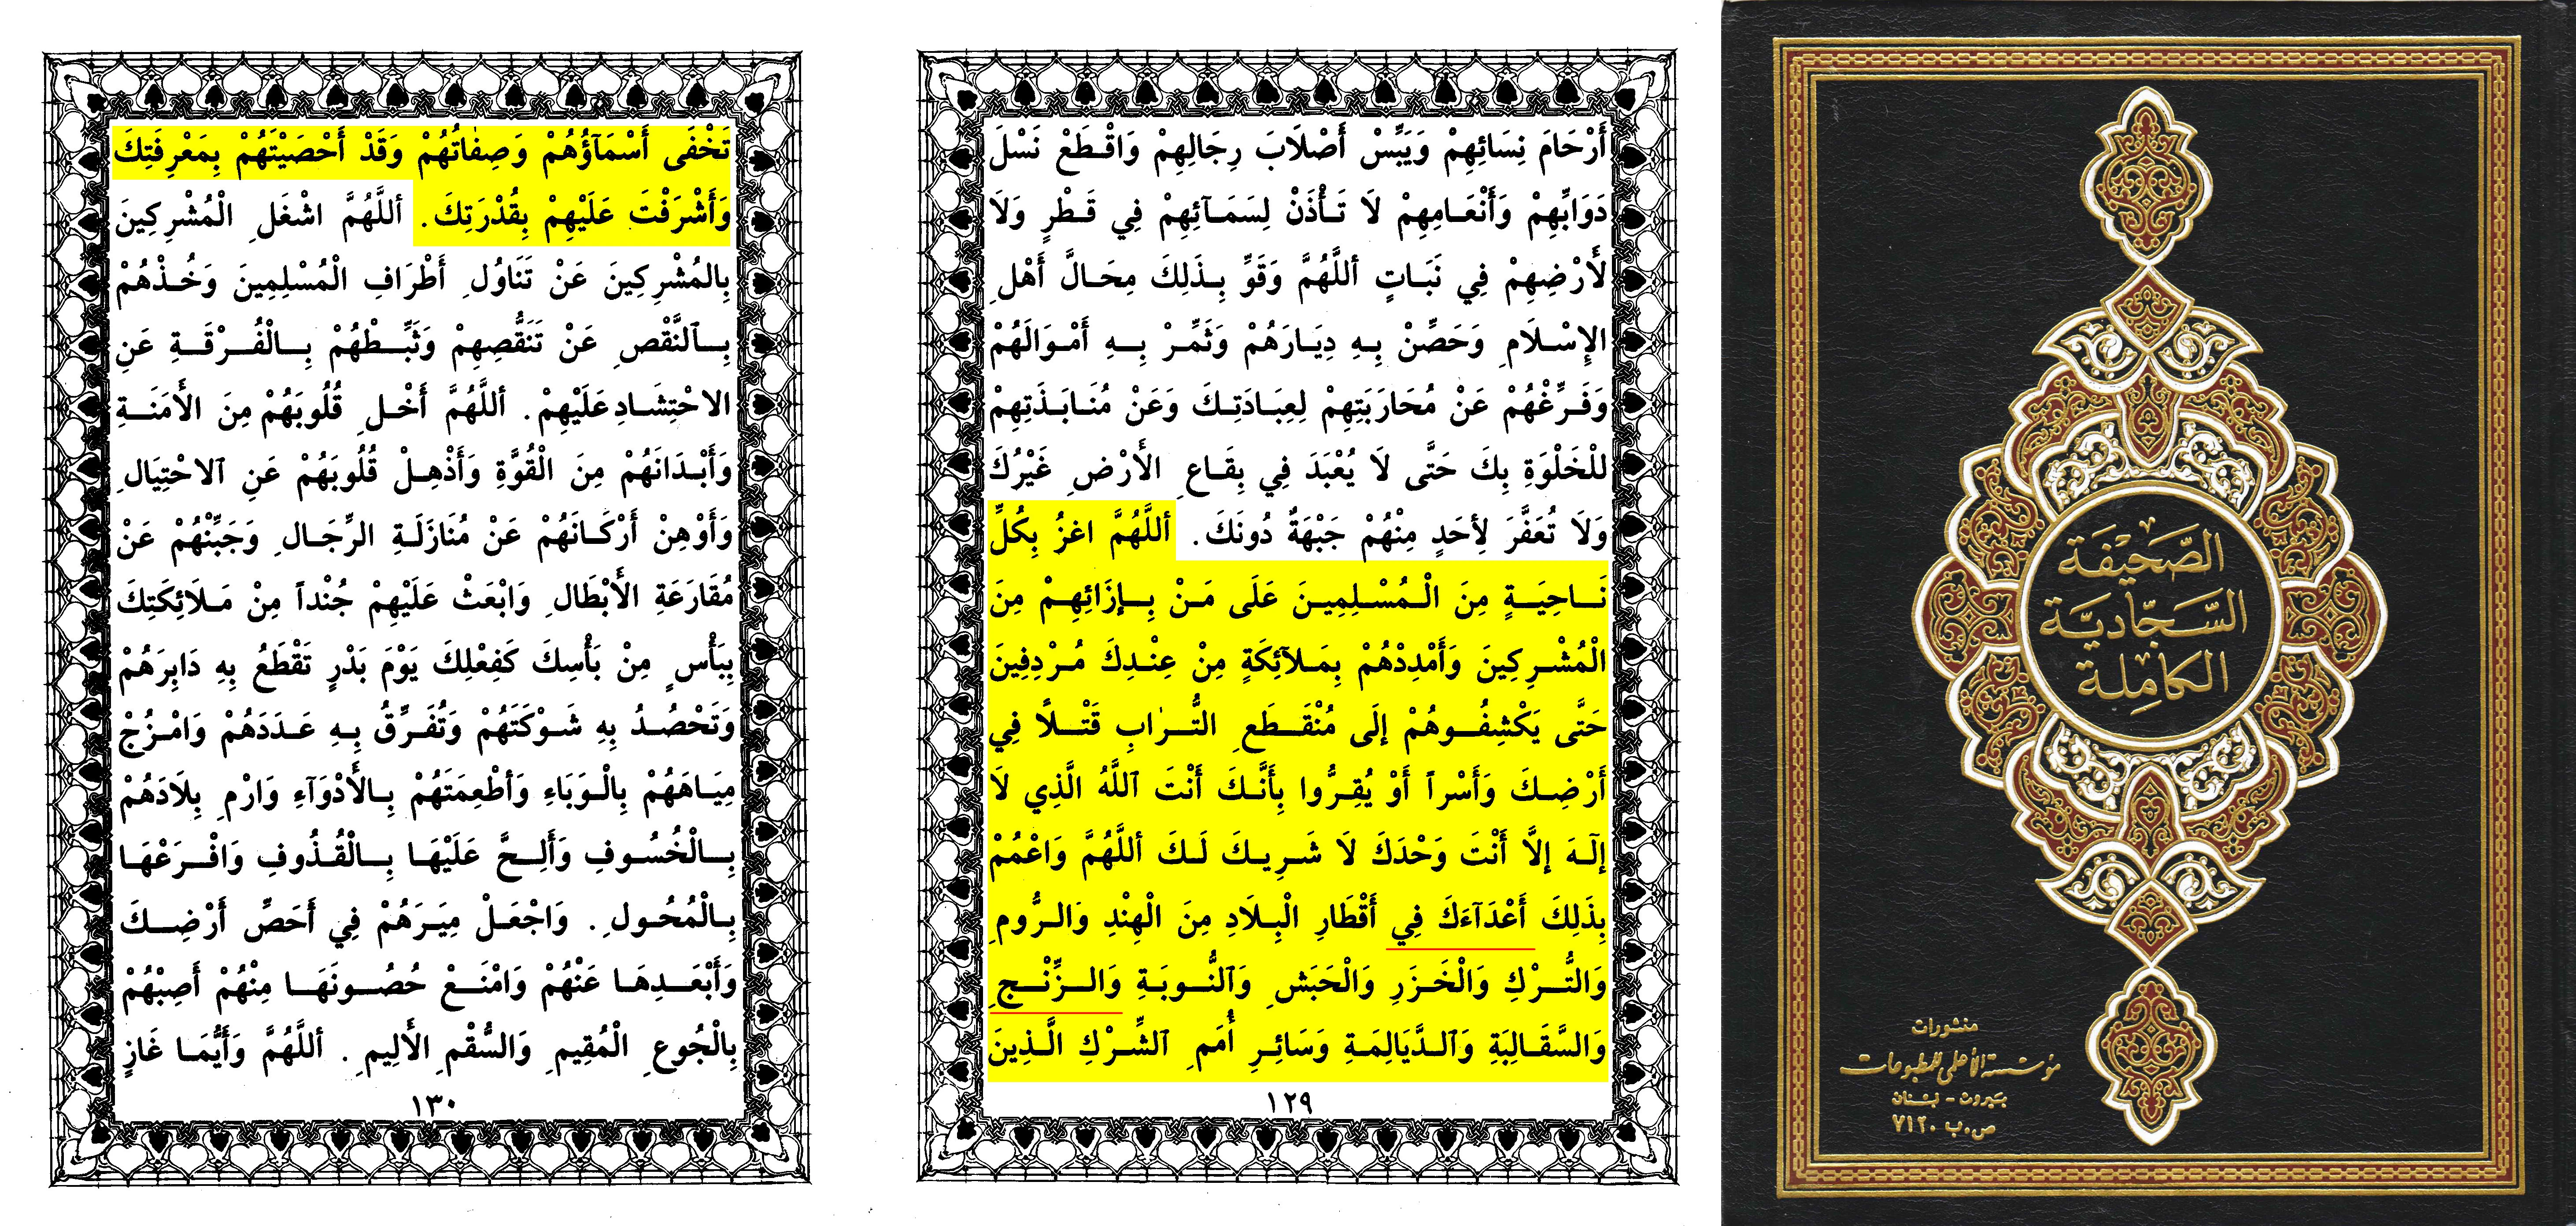 الصَّحِيْفَة
السَّجّاديَّة
الكامِلة
منشورات
مؤسسة الأعلمي للمطبوعات
بيروت - لبنان
ص.ب ٧١٢٠
أَرْحَامَ نِسَائِهِمْ وَيَبِّسْ أَصْلَابَ رِجَالِهِمْ وَاقْطَعْ نَسْلَ
دَوَابِّهِمْ وَأَنْعَامِهِمْ لَا تَأْذَنْ لِسَمَآئِهِمْ فِي قَطْرٍ وَلَا
لأَرْضِهِمْ فِي نَبَاتٍ أللَّهُمَّ وَقَوِّ بِذَلِكَ مِحَالَّ أَهْلِ
الإِسْلَامِ وَحَصِّنْ بِهِ دِيَارَهُمْ وَثَمِّرْ بِهِ أَمْوَالَهُمْ
وَفَرِّغْهُمْ عَنْ مُحَارَبَتِهِمْ لِعِبَادَتِكَ وَعَنْ مُنَابَذَتِهِمْ
لِلْخَلْوَةِ بِكَ حَتَّى لَا يُعْبَدَ فِي بِقَاعِ الأَرْضِ غَيْرُكَ
وَلَا تُعَفَّرَ لِأَحَدٍ مِنْهُمْ جَبْهَةٌ دُونَكَ. أللَّهُمَّ اغزُ بِكُلِّ
نَاحِيَةٍ مِنَ الْمُسْلِمِينَ عَلَى مَنْ بِإِزَائِهِمْ مِنَ
الْمُشْرِكِينَ وَأَمْدِدْهُمْ بِمَلآئِكَةٍ مِنْ عِنْدِكَ مُرْدِفِينَ
حَتَّى يَكْشِفُوهُمْ إِلَى مُنْقَطَعِ التُّرَابِ قَتْلاً فِي
أَرْضِكَ وَأَسْراً أَوْ يُقِرُّوا بِأَنَّكَ أَنْتَ ٱللَّهُ الَّذِي لَا
إِلَهَ إِلَّا أَنْتَ وَحْدَكَ لَا شَرِيكَ لَكَ أللَّهُمَّ وَاعْمُمْ
بِذَلِكَ أَعْدَآءَكَ فِي أَقْطَارِ الْبِلَادِ مِنَ الْهِنْدِ وَالرُّومِ
وَالتُّرْكِ وَالْخَزَرِ وَالْحَبَشِ وَٱلنُّوبَةِ وَالزِّنْجِ
وَالسَّقَالِبَةِ وَٱلدَّيَالِمَةِ وَسَائِرِ أُمَمِ ٱلشِّرْكِ الَّذِينَ
١٢٩
تَخْفَى أَسْمَآؤُهُمْ وَصِفَاتُهُمْ وَقَدْ أَحْصَيْتَهُمْ بِمَعْرِفَتِكَ
وَأَشْرَفْتَ عَلَيْهِمْ بِقُدْرَتِكَ. أللَّهُمَّ اشْغَلِ الْمُشْرِكِينَ
بِالمُشْرِكِينَ عَنْ تَنَاوُلِ أَطْرَافِ الْمُسْلِمِينَ وَخُذْهُمْ
بِٱلنَّقْصِ عَنْ تَنَقُّصِهِمْ وَثَبِّطْهُمْ بِالْفُرْقَةِ عَنِ
الاحْتِشَادِ عَلَيْهِمْ. أللَّهُمَّ أَخْلِ قُلُوبَهُمْ مِنَ الأَمَنَةِ
وَأَبْدَانَهُمْ مِنَ الْقُوَّةِ وَأَذْهِلْ قُلُوبَهُمْ عَنِ ٱلاحْتِيَالِ
وَأَوْهِنْ أَرْكَانَهُمْ عَنْ مُنَازَلَةِ الرِّجَالِ وَجَبِّنْهُمْ عَنْ
مُقَارَعَةِ الأَبْطَالِ وَابْعَثْ عَلَيْهِمْ جُنْداً مِنْ مَلَائِكَتِكَ
بِبَأْسٍ مِنْ بَأْسِكَ كَفِعْلِكَ يَوْمَ بَدْرٍ تَقْطَعُ بِهِ دَابِرَهُمْ
وَتَحْصُدُ بِهِ شَوْكَتَهُمْ وَتُفَرِّقُ بِهِ عَدَدَهُمْ وَامْزُجْ
مِيَاهَهُمْ بِالْوَبَاءِ وَأَطْعِمَتَهُمْ بِالأَدْوَآءِ وَارْمِ بِلَادَهُمْ
بِالْخُسُوفِ وَأَلِحَّ عَلَيْهَا بِالْقُذُوفِ وَافْرَعْهَا
بِالْمُحُولِ. وَاجْعَلْ مِيَرَهُمْ فِي أَحَصِّ أَرْضِكَ
وَأَبْعَدِهَا عَنْهُمْ وَامْنَعْ حُصُونَهَا مِنْهُمْ أَصِبْهُمْ
بِالْجُوعِ الْمُقِيمِ وَالسُّقْمِ الأَلِيمِ. أللَّهُمَّ وَأَيُّمَا غَازٍ
١٣٠